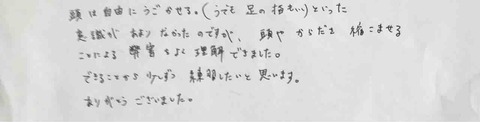 頭は自由にうごかせる。(うでも 足の指もい)といった
意識が あまり なかった のですが、頭や からだを 縮こませる
ことによる 弊害を よく 理解 できました。
できることから 少しずつ 練習したいと 思います。
ありがとう ございました。